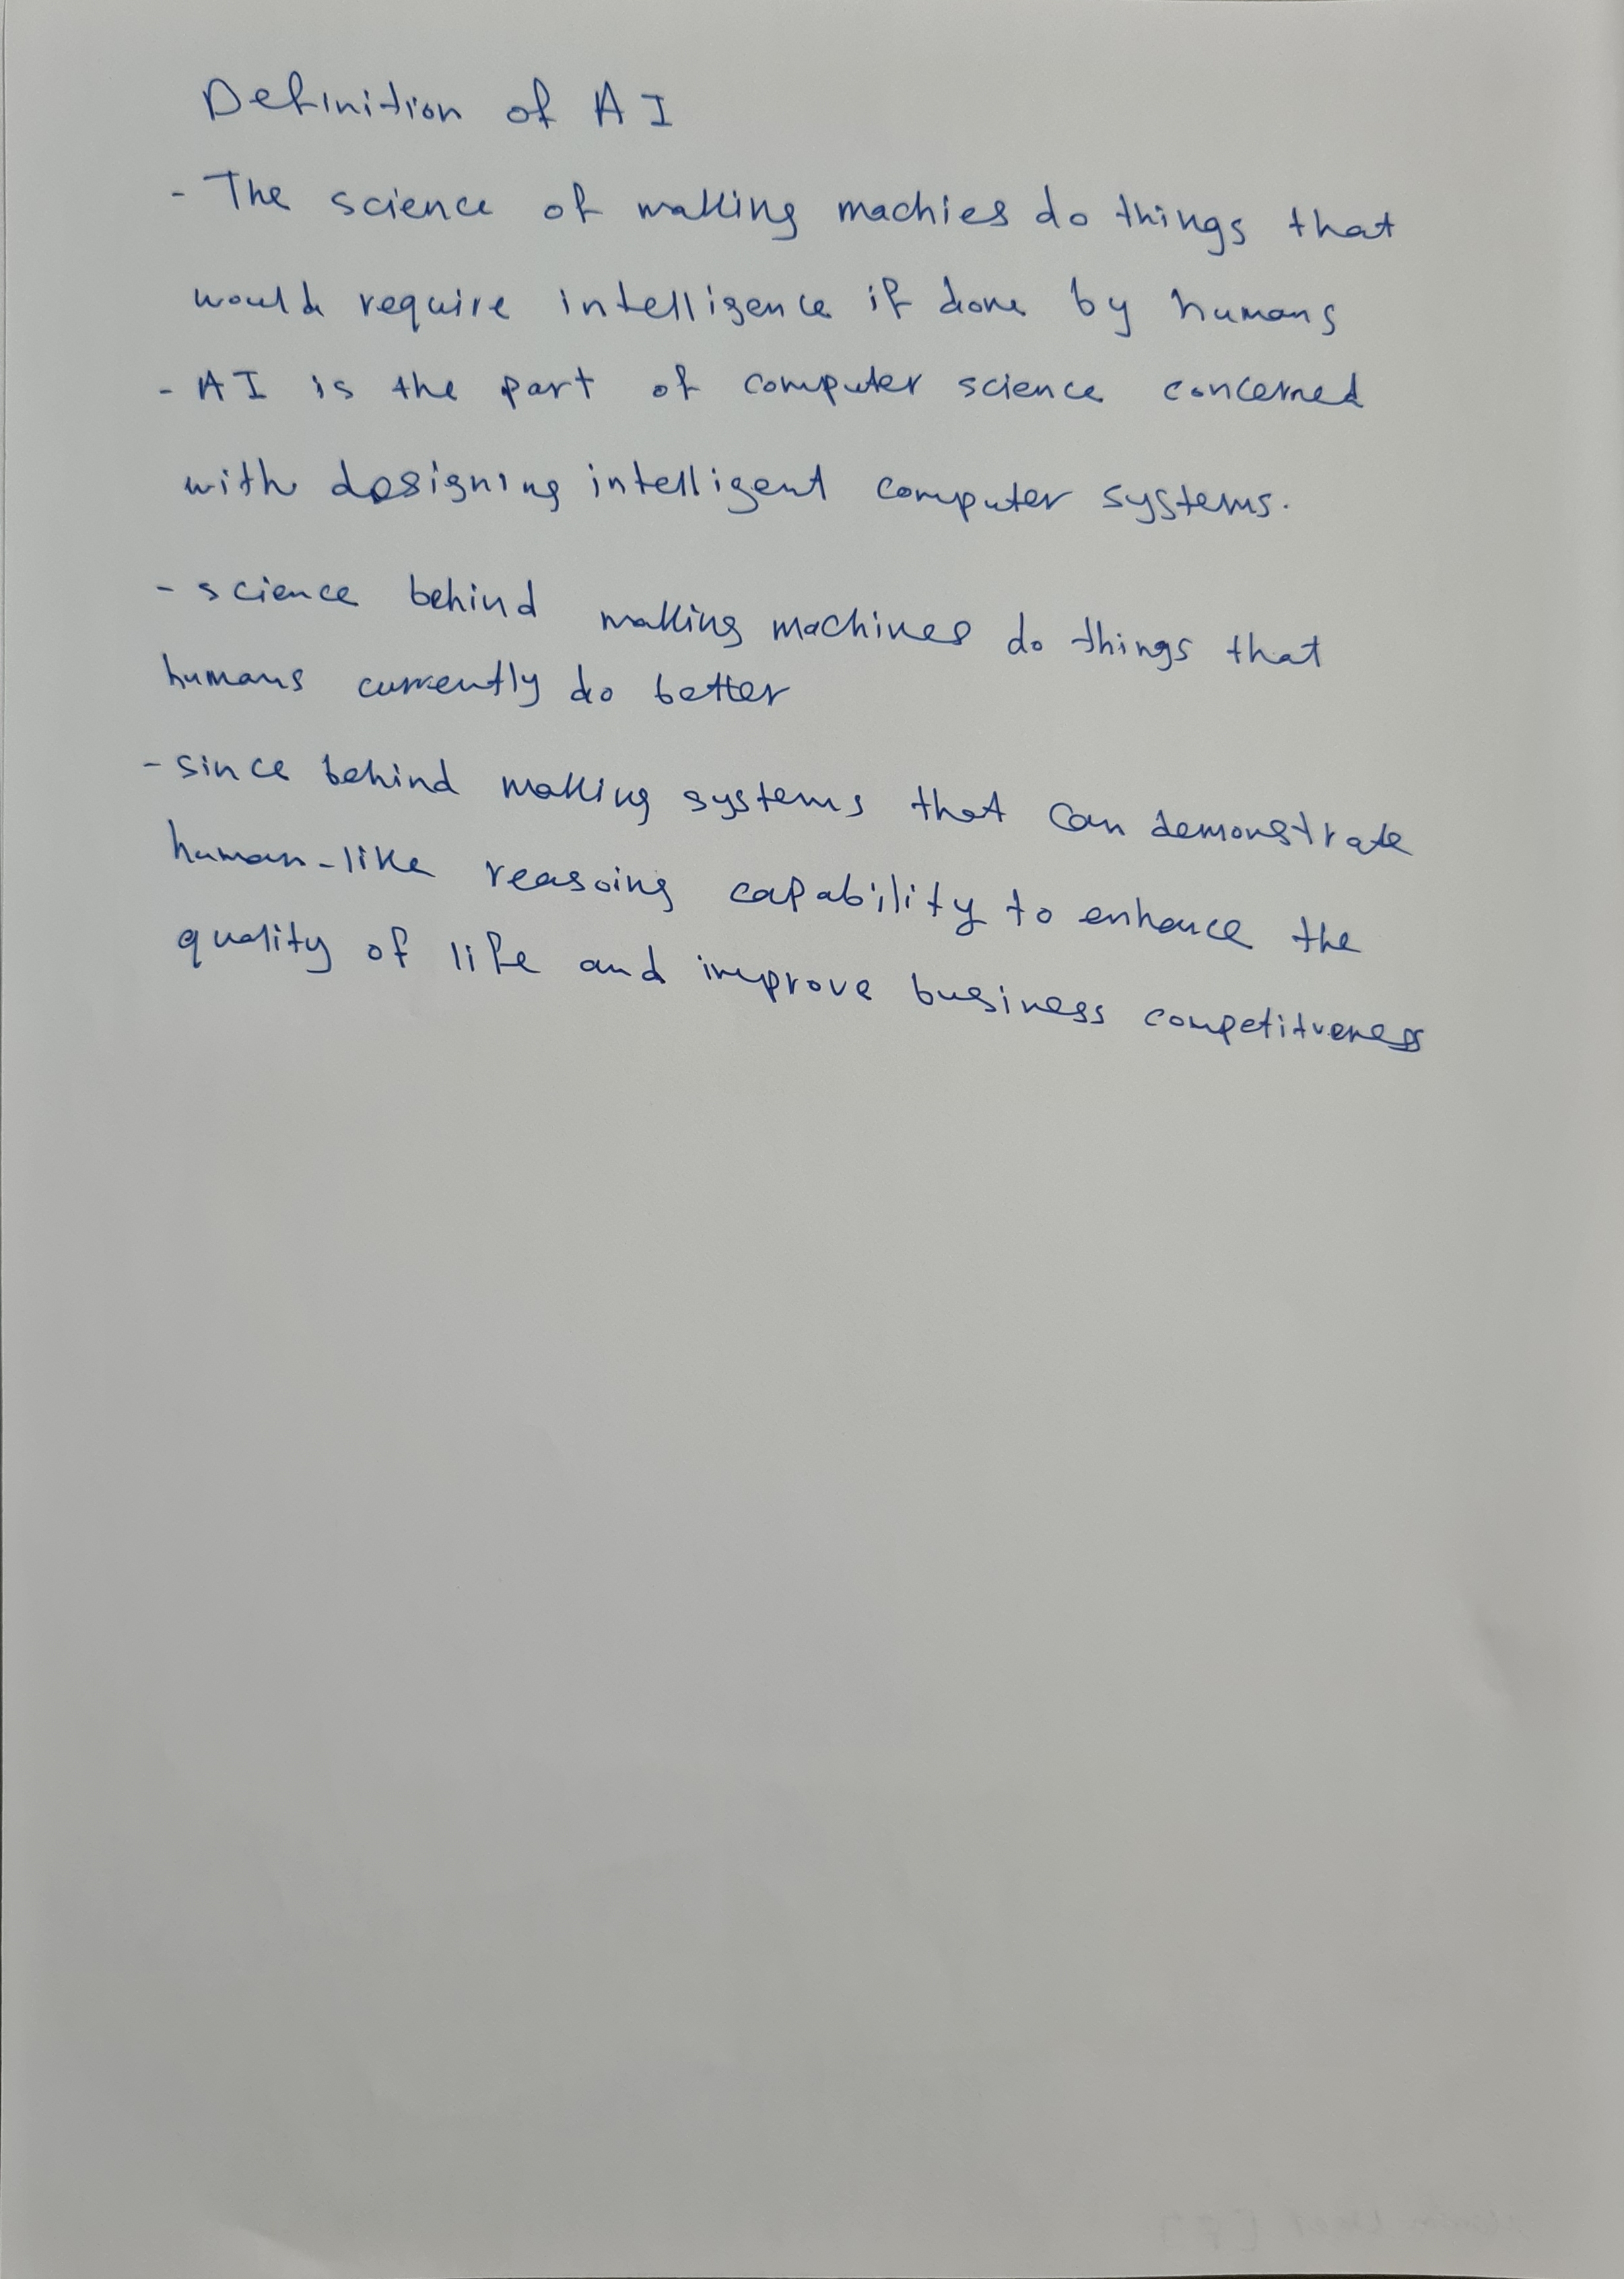 Definition of AI
- The science of making machies do things that
would require intelligence if done by humans
- AI is the part of computer science concerned
with designing intelligent computer systems.
- science behind making machines do things that
humans currently do better
- since behind making systems that can demonstrate
human-like reasoing capability to enhance the
quality of life and improve business competitveness